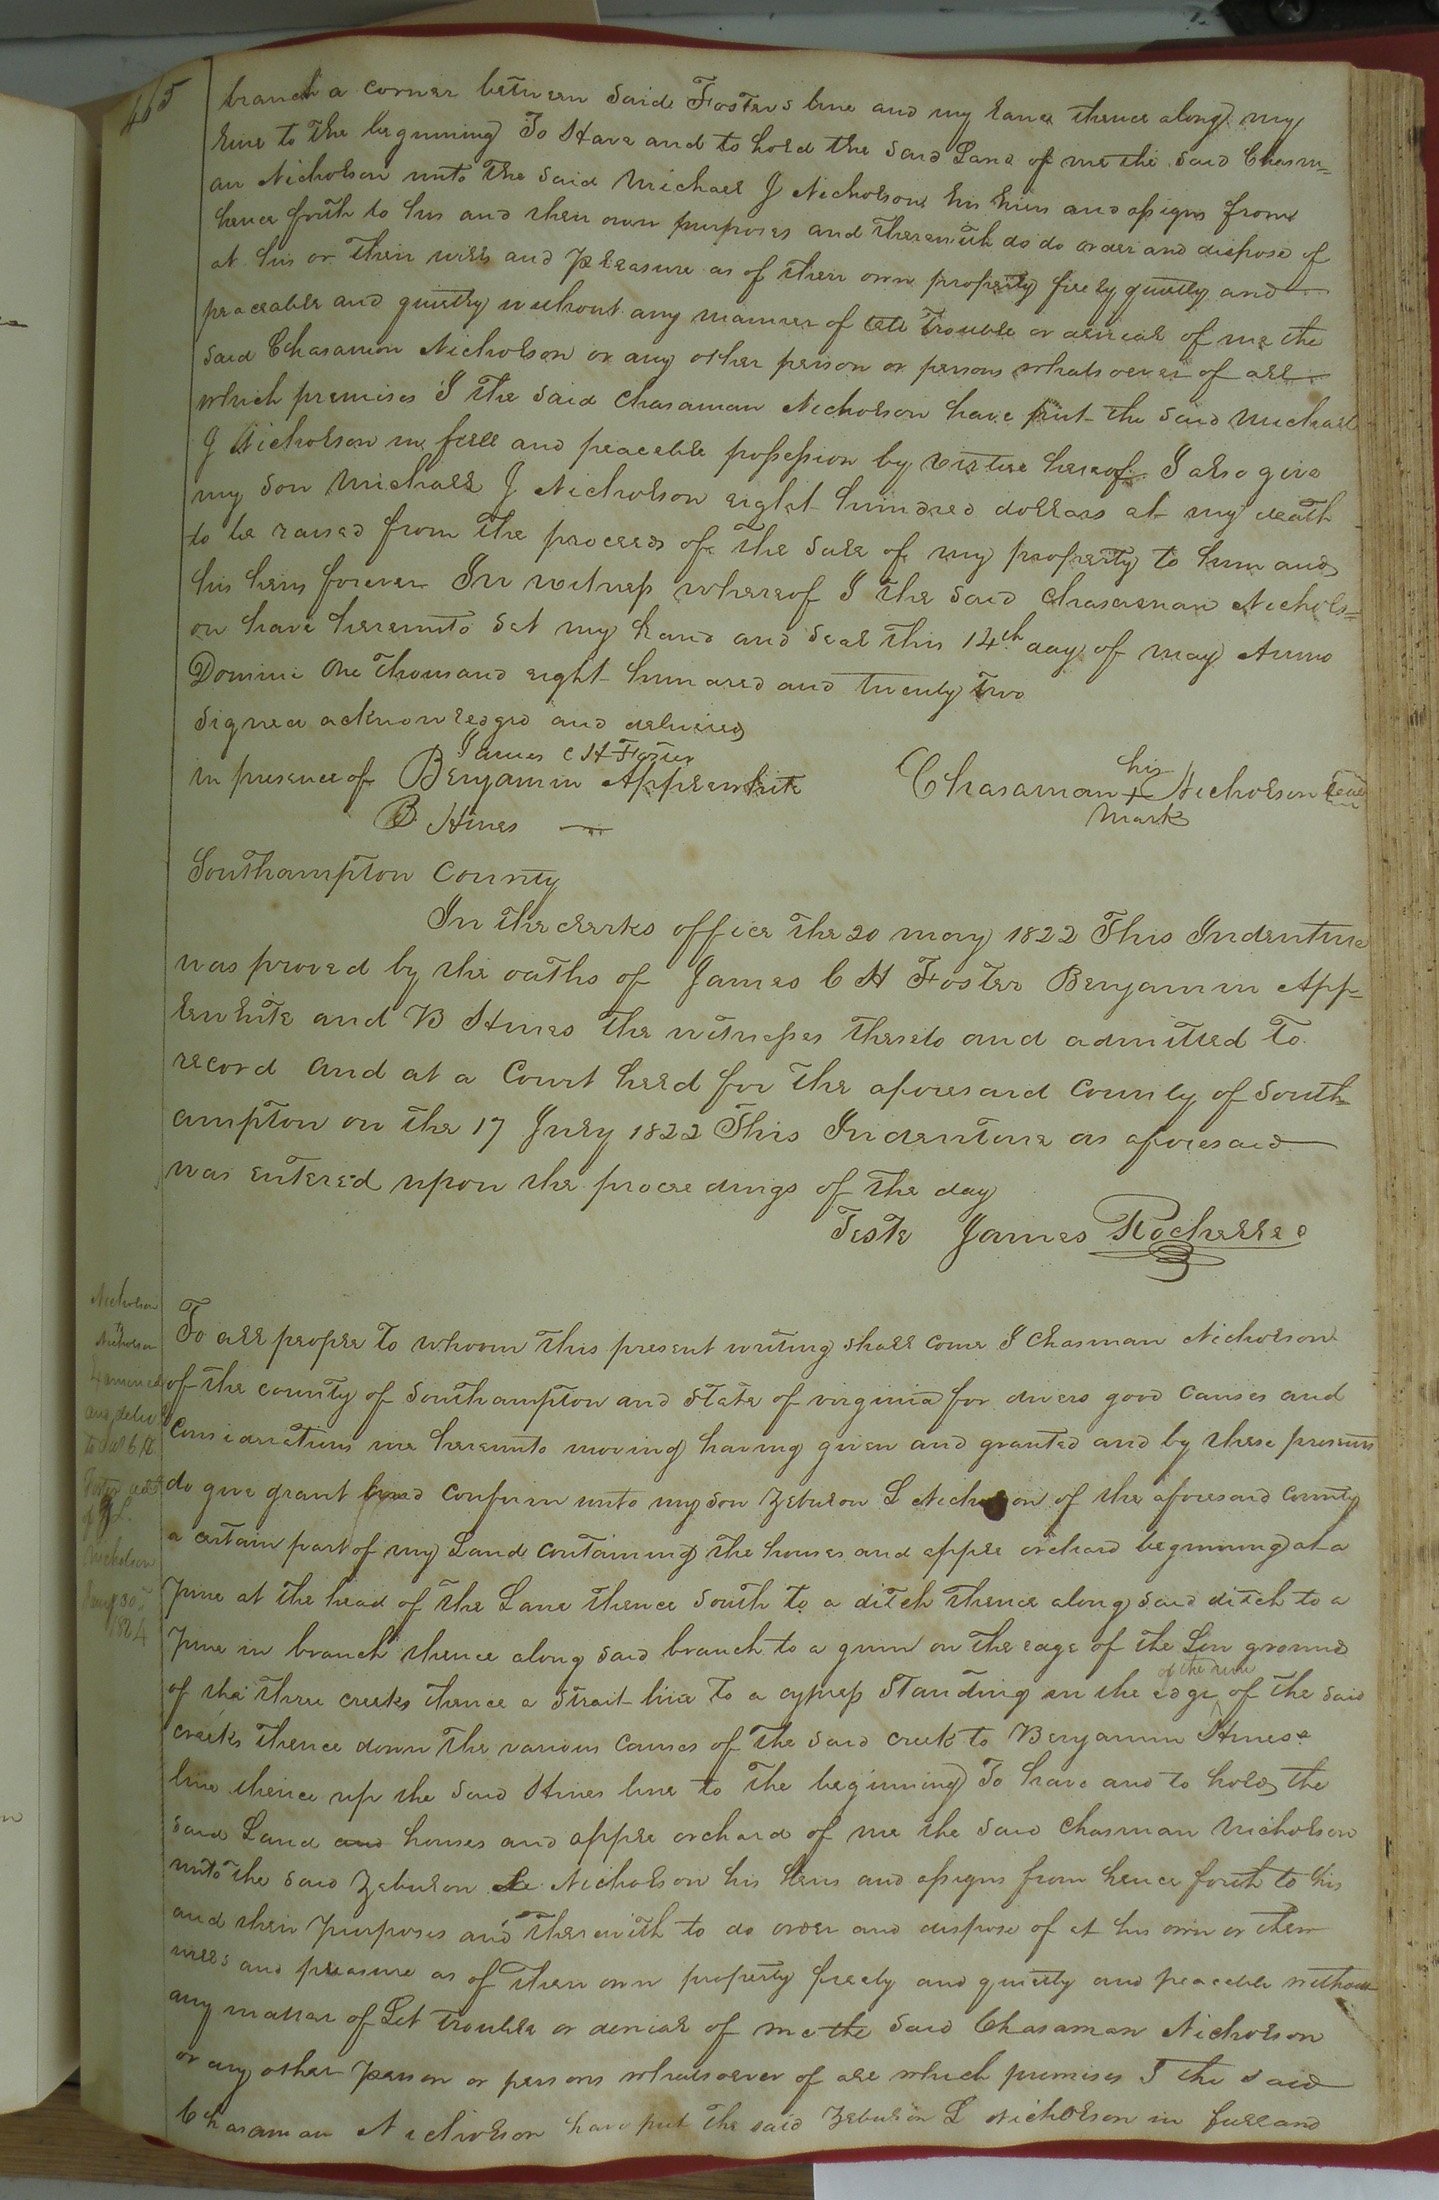 465
branch a corner between said Fosters line and my Land thence along my
line to the beginning To Have and to hold the said Land of me the said Chasm=
an Nicholson unto the said Michael J Nicholson his heirs and assigns from
hence forth to his and their own purposes and therewith do do order and dispose of
at his or their will and pleasure as of their own property freely quietly and
peaceable and quietly without any manner of let trouble or denial of me the
said Chasaman Nicholson or any other person or persons whatsoever of all
which premises I the said Chasaman Nicholson have put the said Michael
J Nicholson in full and peaceble possession by virtue hereof I also give
my son Michael J Nicholson eight hundred dollars at my death
to be raised from the proceeds of the sale of my property to him and
his heirs forever In witness whereof I the said Chasaman Nichols=
on have hereunto set my hand and seal this 14th day of may Anno
Domini One Thousand eight hundred and twenty two
Signed acknowledged and delivered
James C H Foster
in presence of Benjamin Applewhite
B Hines
his
Chasaman + Nicholson Seal
Mark
Southampton County
In the clerks office the 20 may 1822 This Indenture
was proved by the oaths of James C H Foster Benjamin App=
lewhite and B Hines the witnesses thereto and admitted to
record and at a Court held for the aforesaid County of South=
ampton on the 17 July 1822 This Indenture as aforesaid
was entered upon the proceedings of the day
Teste James Rochelle
Nicholson
to
Nicholson
Examined
and deliv
Nicholson
30
1824
To all people to whoom this present writing shall come I Chasman Nicholson
of the county of Southampton and State of virginia for divers good causes and
Considerations me hereunto moving having given and granted and by these presents
do give grant and confirm unto my son Zebulon L Nicholson of the aforesaid county
a certain part of my Land containing the houses and apple orchard beginning at a
pine at the head of the Lane thence South to a ditch thence along said ditch to a
pine in branch thence along said branch to a gum on the edge of the Low ground
of the three creeks thence a strait line to a cypress Standing in the edge of the said
of the run
creeks thence down the various causes of the said creek to Benjamin Hines
line thence up the said Hines line to the beginning To have and to hold the
said Land and houses and apple orchard of me the said Chasman Nicholson
unto the said Zebulon L Nicholson his heirs and assigns from hence forth to his
and their purposes and therewith to do order and dispose of at his own or their
wills and pleasure as of their own property freely and quietly and peaceble without
any matter of Let trouble or denial of me the said Chasaman Nicholson
or any other person or persons whatsoever of all which premises I the said
Chasaman Nicholson have put the said Zebulon L Nicholson in full and